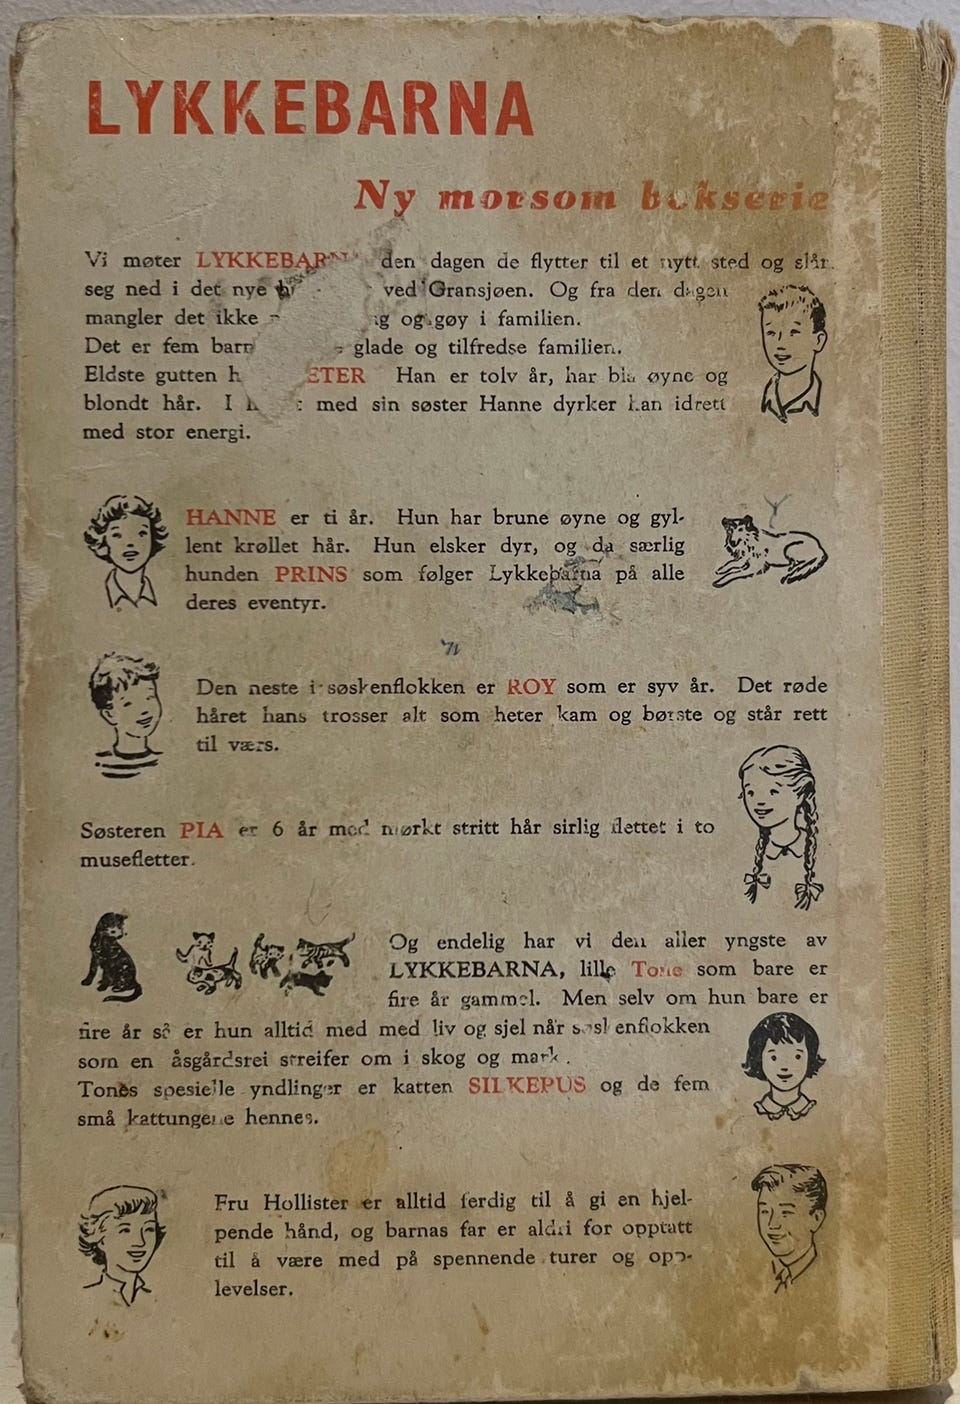 LYKKEBARNA
Ny morsom bokserie
Vi møter LYKKEBARN den dagen de flytter til et nytt sted og slår
seg ned i det nye ved Gransjøen. Og fra den dagen
mangler det ikke og gøy i familien.
Det er fem barn glade og tilfredse familien.
Eldste gutten ETER Han er tolv år, har blå øyne og
blondt hår. I med sin søster Hanne dyrker han idrett
med stor energi.
HANNE er ti år. Hun har brune øyne og gyl-
lent krøllet hår. Hun elsker dyr, og da særlig
hunden PRINS som følger Lykkebarna på alle
deres eventyr.
Den neste i søskenflokken er ROY som er syv år. Det røde
håret hans trosser alt som heter kam og børste og står rett
til værs.
Søsteren PIA er 6 år med mørkt stritt hår sirlig flettet i to
musefletter.
Og endelig har vi den aller yngste av
LYKKEBARNA, lille Tone som bare er
fire år gammel. Men selv om hun bare er
fire år så er hun alltid med med liv og sjel når søskenflokken
som en åsgårdsrei streifer om i skog og mark.
Tones spesielle yndlinger er katten SILKEPUS og de fem
små kattungene hennes.
Fru Hollister er alltid ferdig til å gi en hjel-
pende hånd, og barnas far er aldri for opptatt
til å være med på spennende turer og opp-
levelser.